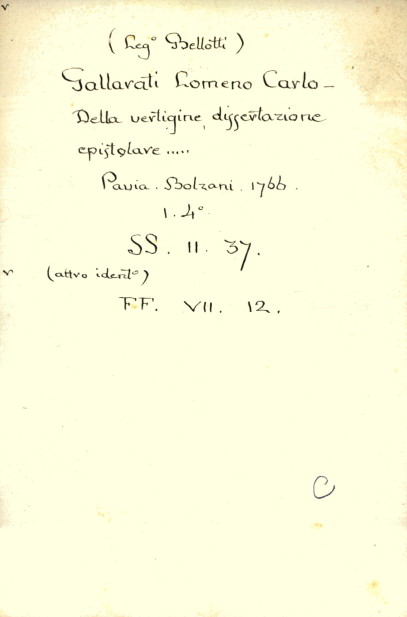 v
( Leg° Bellotti )
Gallarati Lomeno Carlo -
Della vertigine, dissertazione
epistolare .....
Pavia . Bolzani . 1766 .
1. 4°
SS. II. 37.
v (altro ident°)
FF. VII. 12.
C